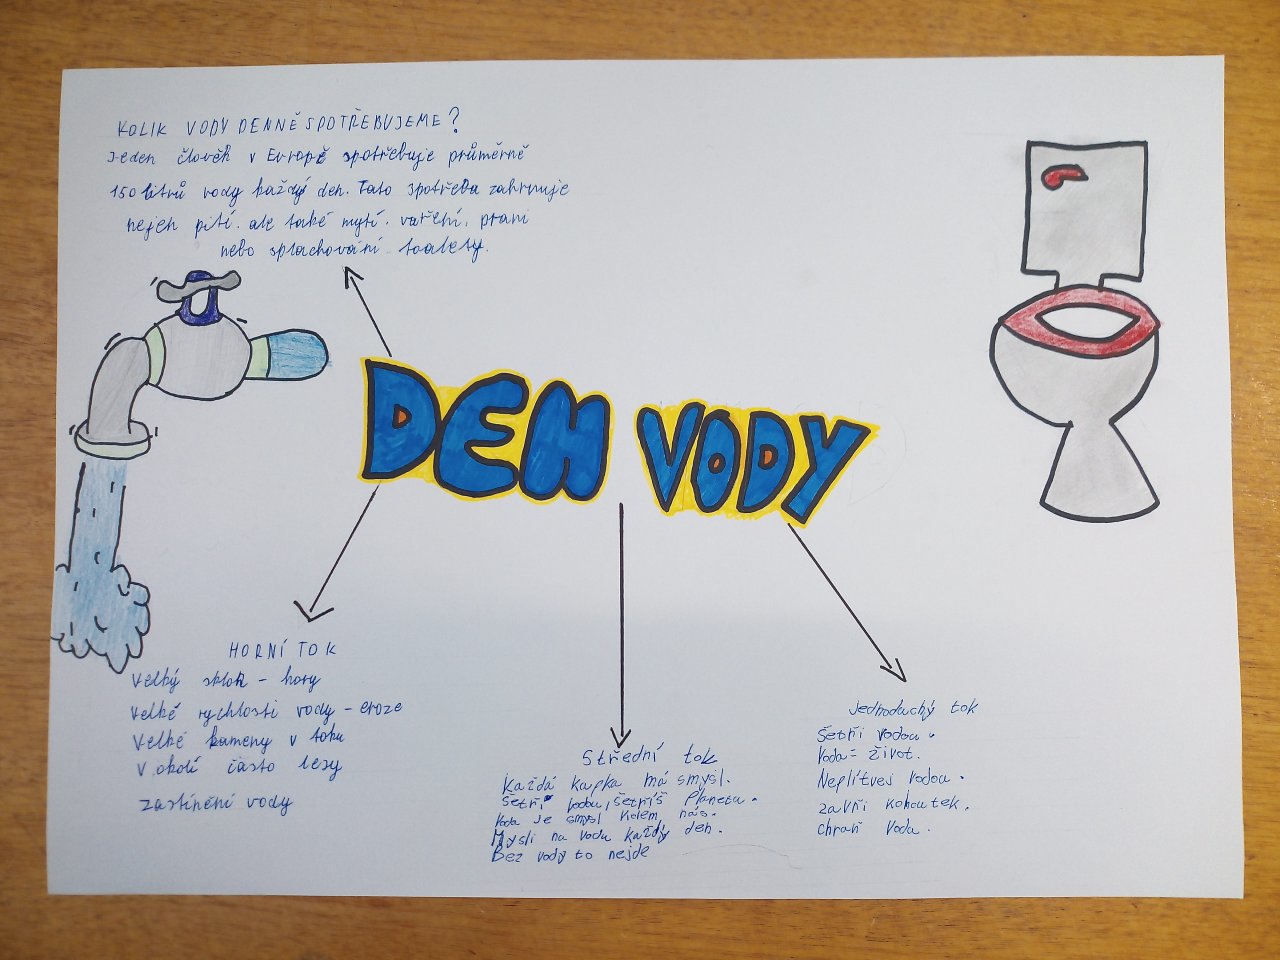 KOLIK VODY DENNĚ SPOTŘEBUJEME?
Jeden člověk v Evropě spotřebuje průměrně
150 litrů vody každý den. Tato spotřeba zahrnuje
nejen pití. ale také mytí. vaření. praní
nebo splachování toalety.
DEN VODY
HORNÍ TOK
Velký sklon - hory
Velké rychlosti vody - eroze
Velké kameny v toku
V okolí často lesy
zastínění vody
Střední tok
Každá kapka má smysl.
šetři vodou, šetříš Planetu.
Voda je smysl kolem nás.
Mysli na vodu každý den.
Bez vody to nejde
Jednoduchý tok
Šetři vodou.
Voda = život.
Neplítvej vodou.
zavři kohoutek.
chraň voda.